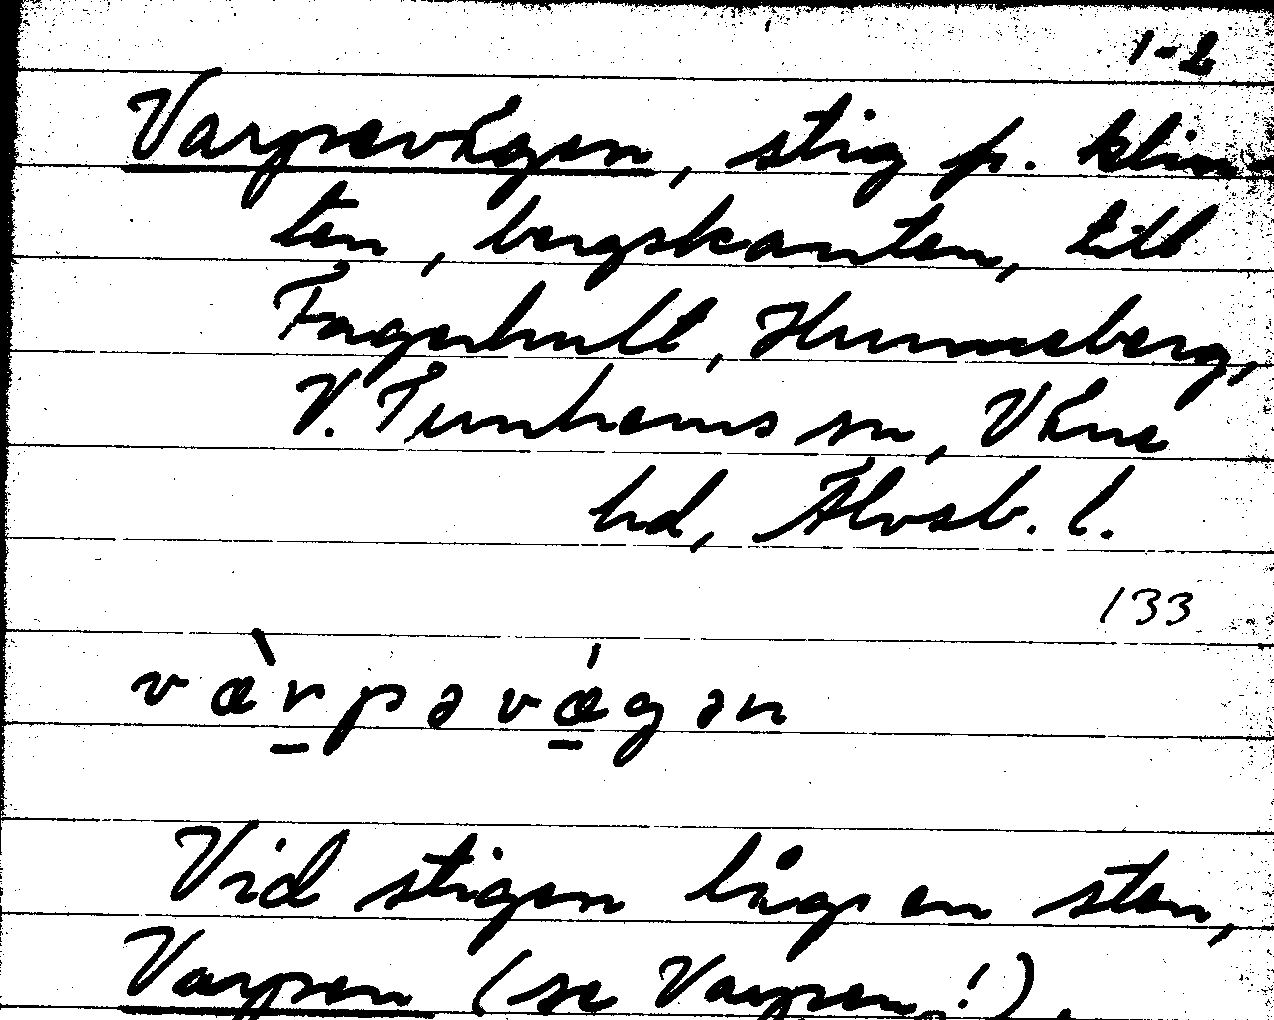 1-2
Varpevägen, stig fr. klin-
ten, bergskanten, till
Fagerhult, Hunneberg,
V. Tunhems sn, Väne
hd, Älvsb. l.
133
vàrpəvǽgən
Vid stigen låg en sten,
Varpen (se Varpen!).